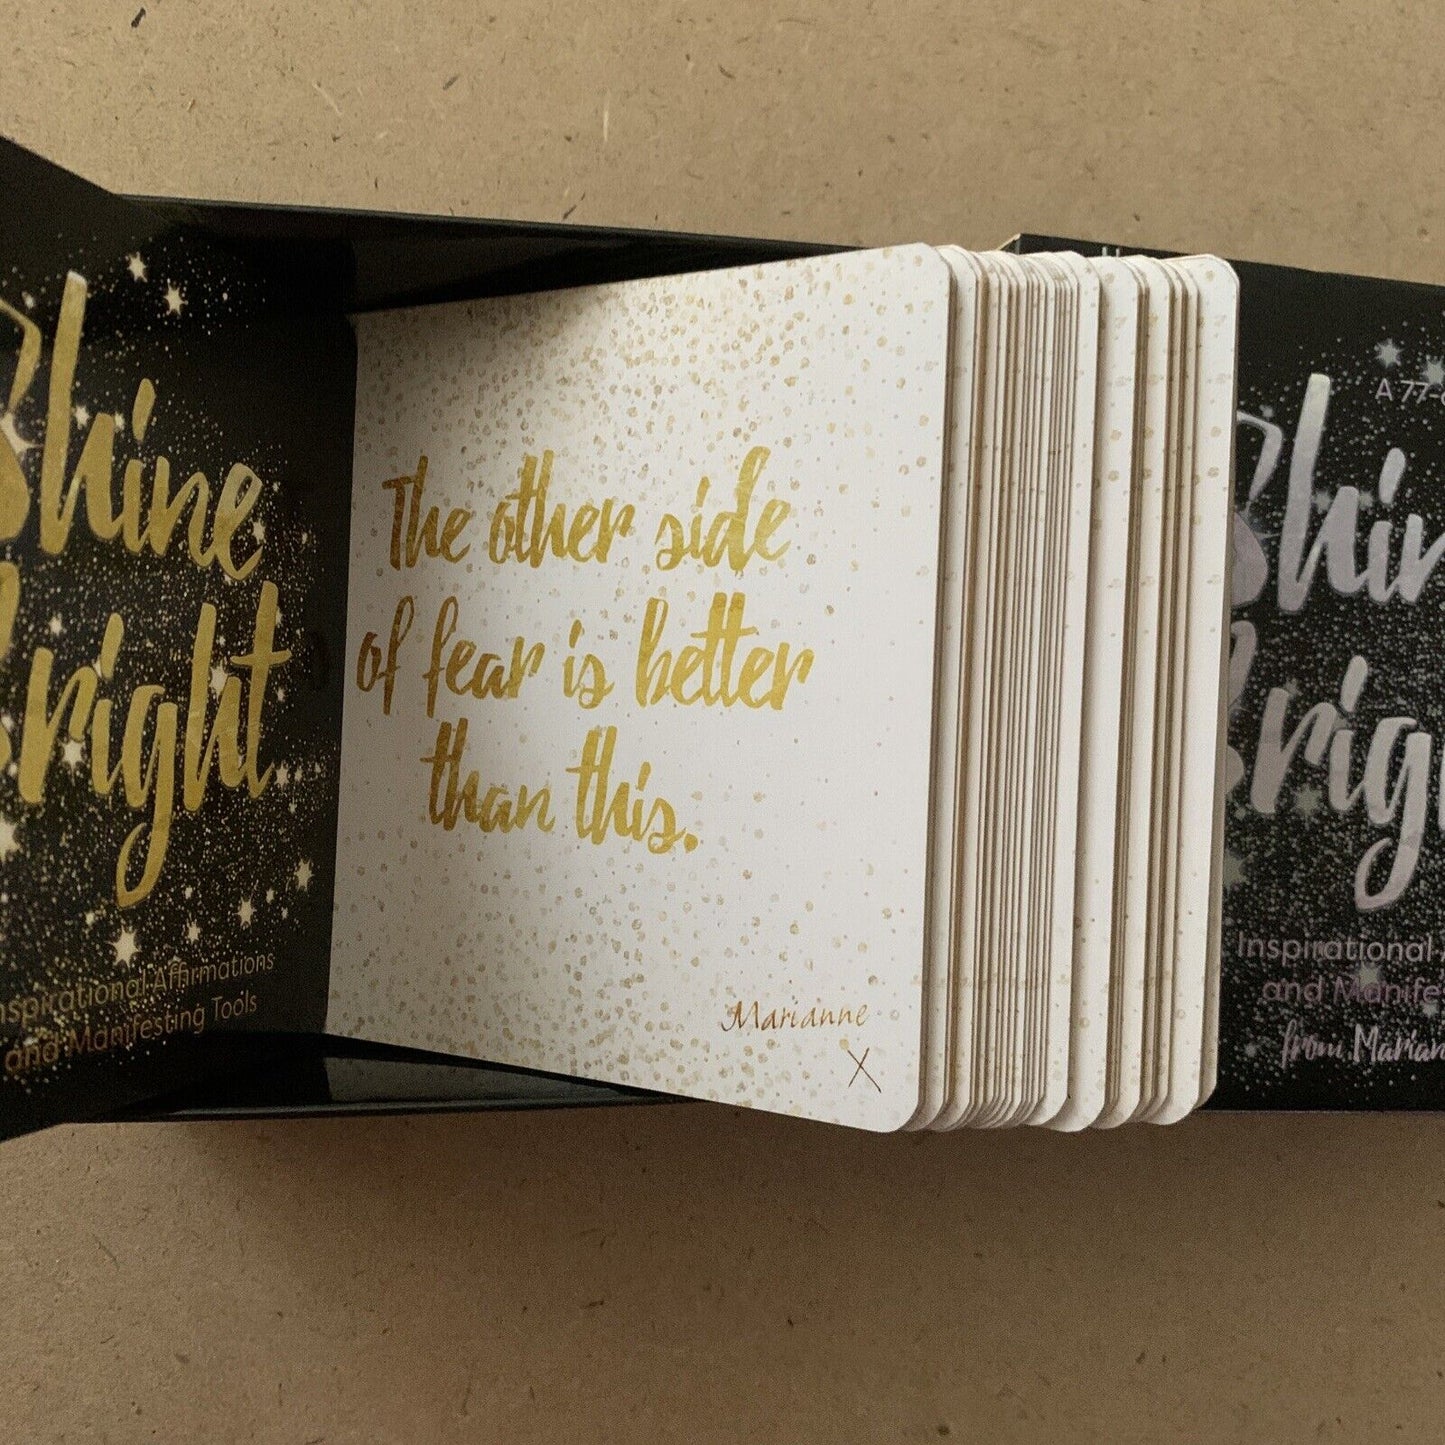 Shine
bright
Inspirational Affirmations
and Manifesting Tools
The other side
of fear is better
than this.
Marianne
X
A 77-
Shin
brig
Inspirational
and Manife
from Marian